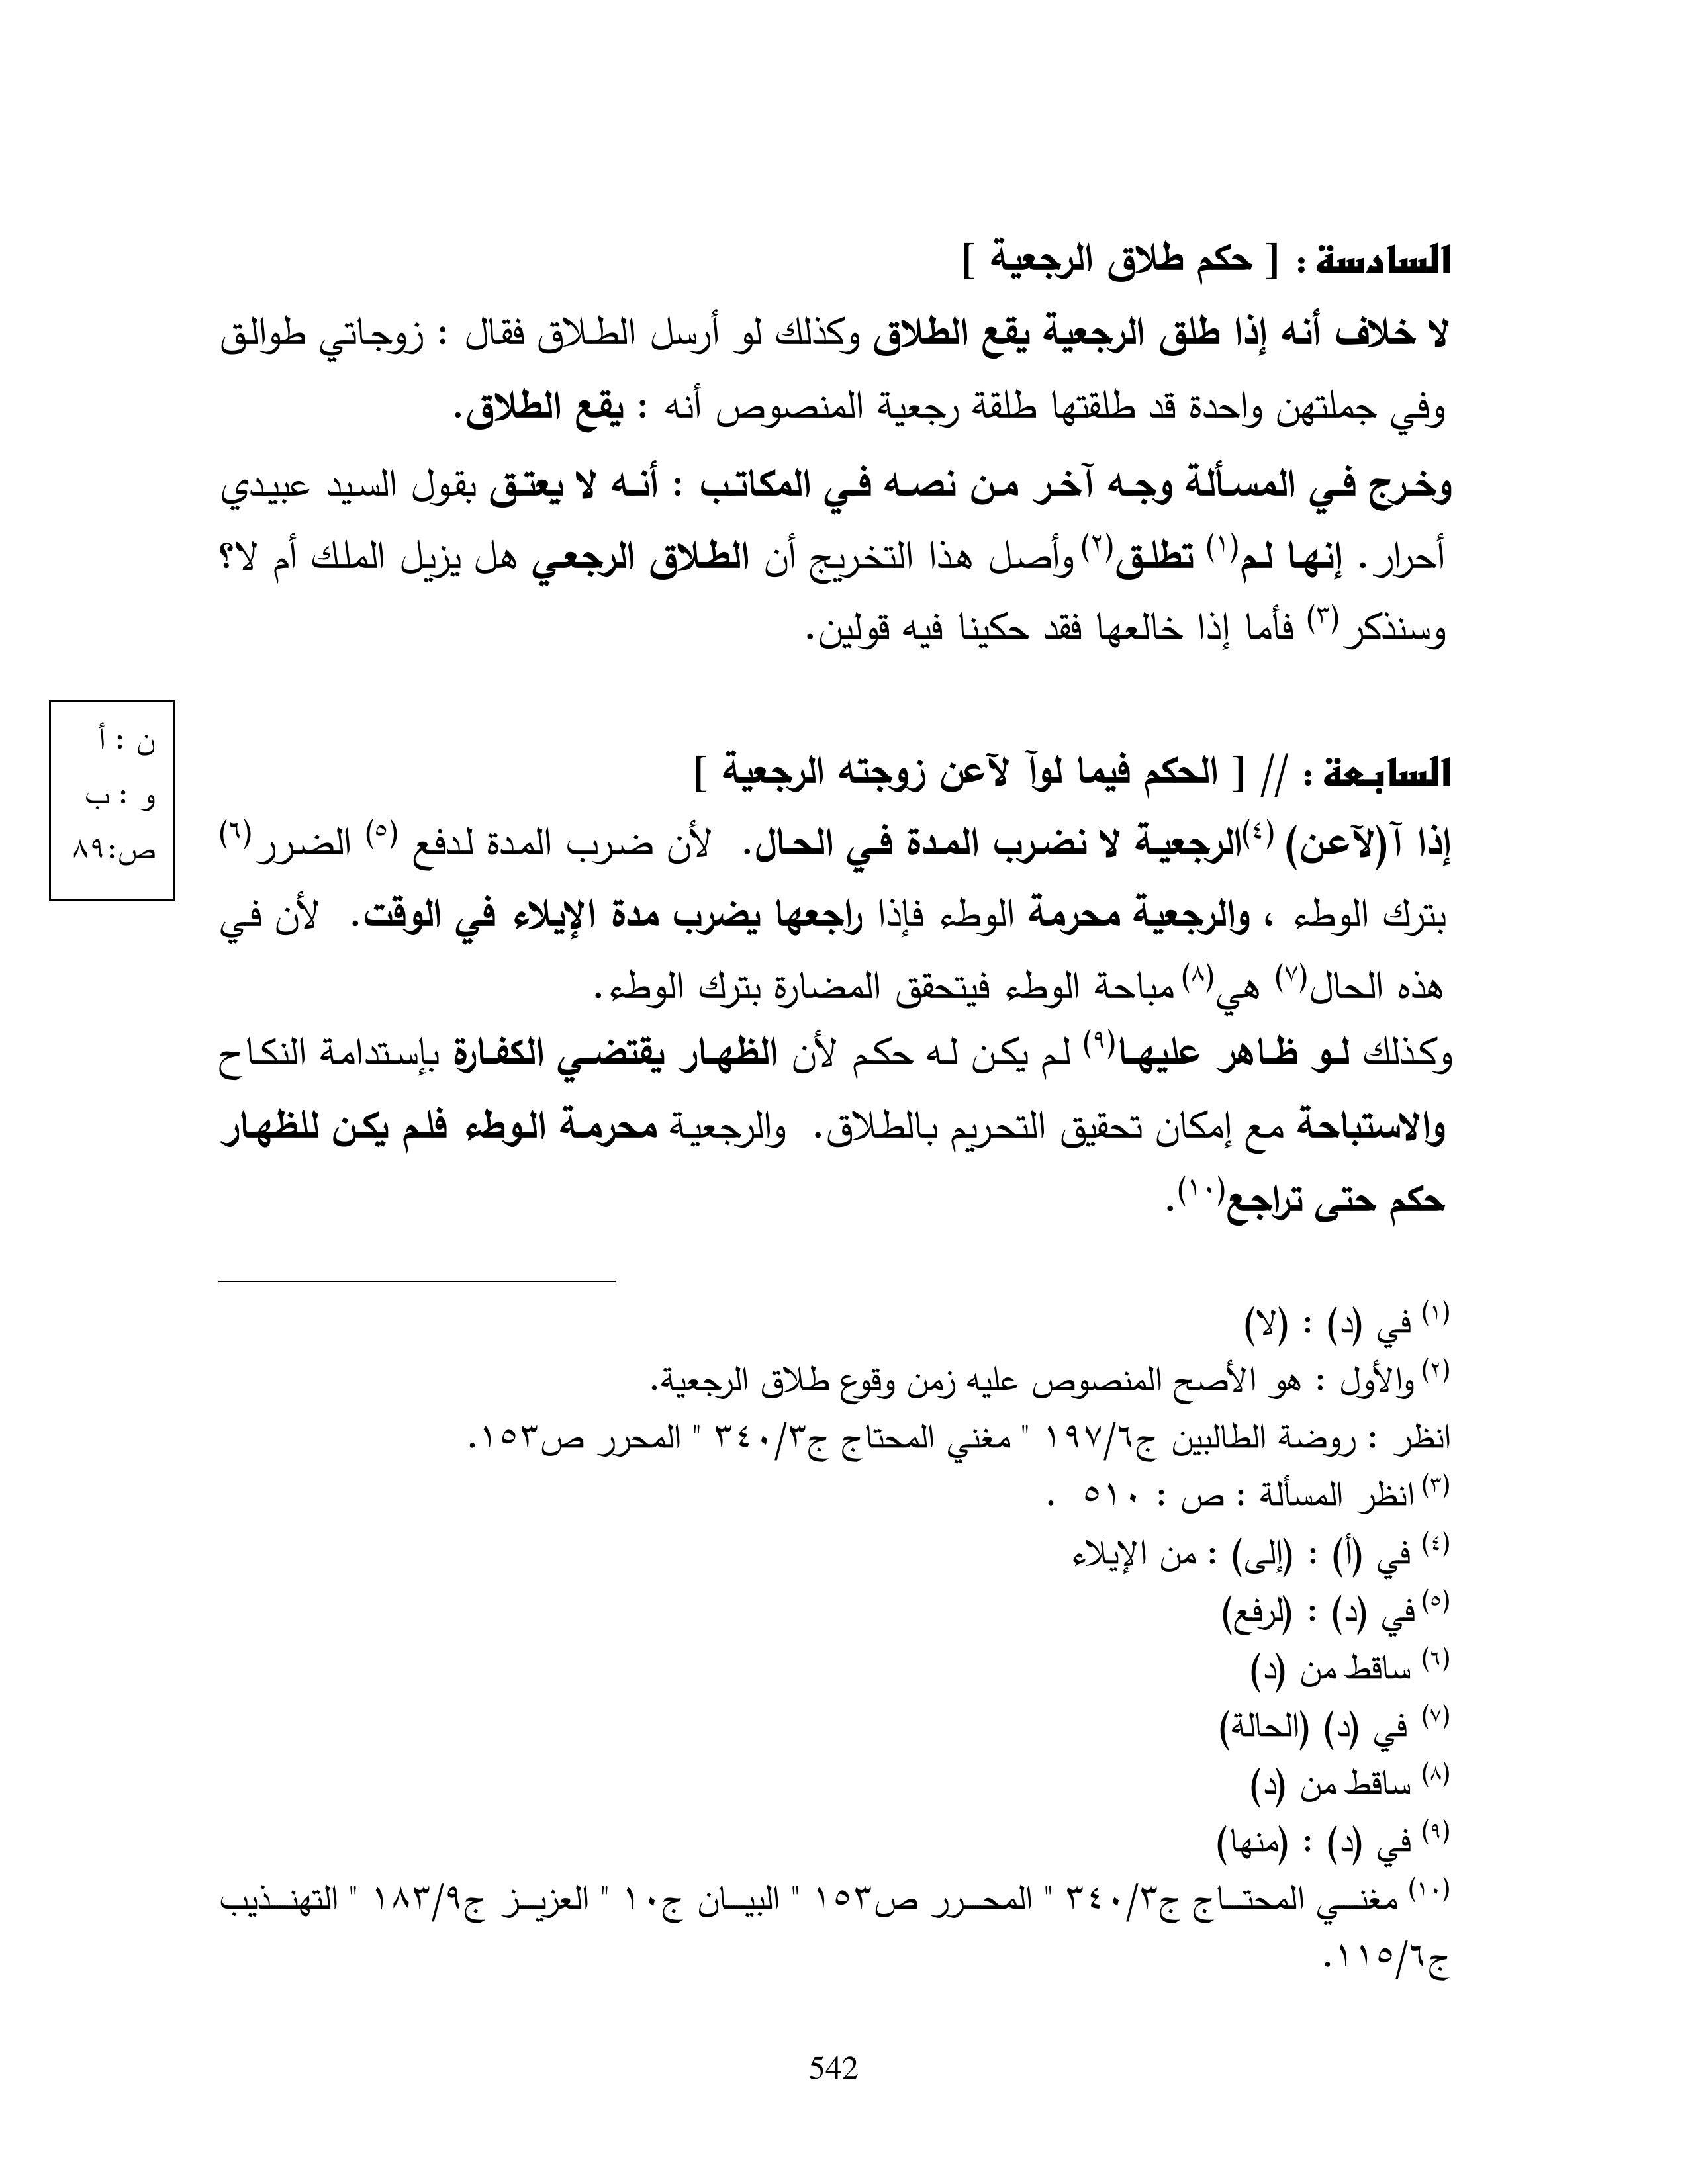 السادسة : [ حكم طلاق الرجعية ]
لا خلاف أنه إذا طلق الرجعية يقع الطلاق وكذلك لو أرسل الطلاق فقال : زوجاتي طوالق
وفي جملتهن واحدة قد طلقتها طلقة رجعية المنصوص أنه : يقع الطلاق.
وخرج في المسألة وجه آخر من نصه في المكاتب : أنه لا يعتق بقول السيد عبيدي
أحرار. إنها لم(١) تطلق(٢) وأصل هذا التخريج أن الطلاق الرجعي هل يزيل الملك أم لا؟
وسنذكر(٣) فأما إذا خالعها فقد حكينا فيه قولين.
ن : أ
و : ب
ص:٨٩
السابعة : // [ الحكم فيما لوآ لآعن زوجته الرجعية ]
إذا آ(لآعن) (٤)الرجعية لا نضرب المدة في الحال. لأن ضرب المدة لدفع (٥) الضرر(٦)
بترك الوطء ، والرجعية محرمة الوطء فإذا راجعها يضرب مدة الإيلاء في الوقت. لأن في
هذه الحال(٧) هي(٨) مباحة الوطء فيتحقق المضارة بترك الوطء.
وكذلك لو ظاهر عليها(٩) لم يكن له حكم لأن الظهار يقتضي الكفارة بإستدامة النكاح
والاستباحة مع إمكان تحقيق التحريم بالطلاق. والرجعية محرمة الوطء فلم يكن للظهار
حكم حتى تراجع(١٠).
(١) في (د) : (لا)
(٢) والأول : هو الأصح المنصوص عليه زمن وقوع طلاق الرجعية.
انظر : روضة الطالبين ج٦/١٩٧ " مغني المحتاج ج٣/٣٤٠ " المحرر ص١٥٣.
(٣) انظر المسألة : ص : ٥١٠ .
(٤) في (أ) : (إلى) : من الإيلاء
(٥) في (د) : (لرفع)
(٦) ساقط من (د)
(٧) في (د) (الحالة)
(٨) ساقط من (د)
(٩) في (د) : (منها)
(١٠) مغني المحتاج ج٣/٣٤٠ " المحرر ص١٥٣ " البيان ج١٠ " العزيز ج٩/١٨٣ " التهذيب
ج٦/١١٥.
542